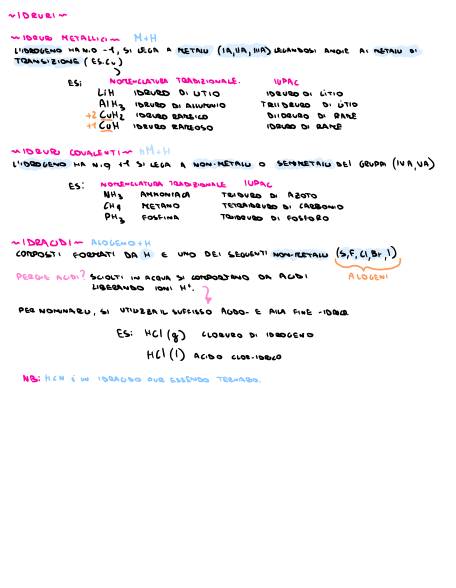 ~IDRURI~
~IDRURI METALLICI~ M+H
L'IDROGENO HA N.O -1, SI LEGA A METALLI (IA, IIA, IIIA) LEGANDOSI ANCHE AI METALLI DI
TRANSIZIONE (ES. Cu)
ES: NOMENCLATURA TRADIZIONALE. IUPAC
LiH IDRURO DI LITIO IDRURO DI LITIO
AlH3 IDRURO DI ALLUMINIO TRIIDRURO DI LITIO
+2 CuH2 IDRURO RAMEICO DIIDRURO DI RAME
+1 CuH IDRURO RAMEOSO IDRURO DI RAME
~IDRURI COVALENTI~ nM+H
L'IDROGENO HA N.O +1 SI LEGA A NON-METALLI O SEMIMETALLI DEI GRUPPI (IVA, VA)
ES: NOMENCLATURA TRADIZIONALE IUPAC
NH3 AMMONIACA TRIIDRURO DI AZOTO
CH4 METANO TETRAIDRURO DI CARBONIO
PH3 FOSFINA TRIIDRURO DI FOSFORO
~IDRACIDI~ ALOGENO+H
COMPOSTI FORMATI DA H E UNO DEI SEGUENTI NON-METALLI (S, F, Cl, Br, I)
PERCHÉ ACIDI? SCIOLTI IN ACQUA SI COMPORTANO DA ACIDI ALOGENI
LIBERANDO IONI H+.
PER NOMINARLI, SI UTILIZZA IL SUFFISSO ACIDO- E ALLA FINE -IDRICO
ES: HCl (g) CLORURO DI IDROGENO
HCl (l) ACIDO CLOR-IDRICO
NB: HCN È UN IDRACIDO PUR ESSENDO TERNARIO.